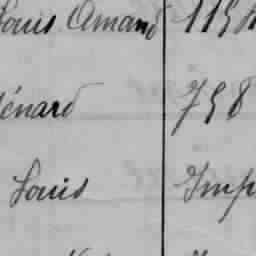 Louis Amand 115
énard 758
Louis Imp